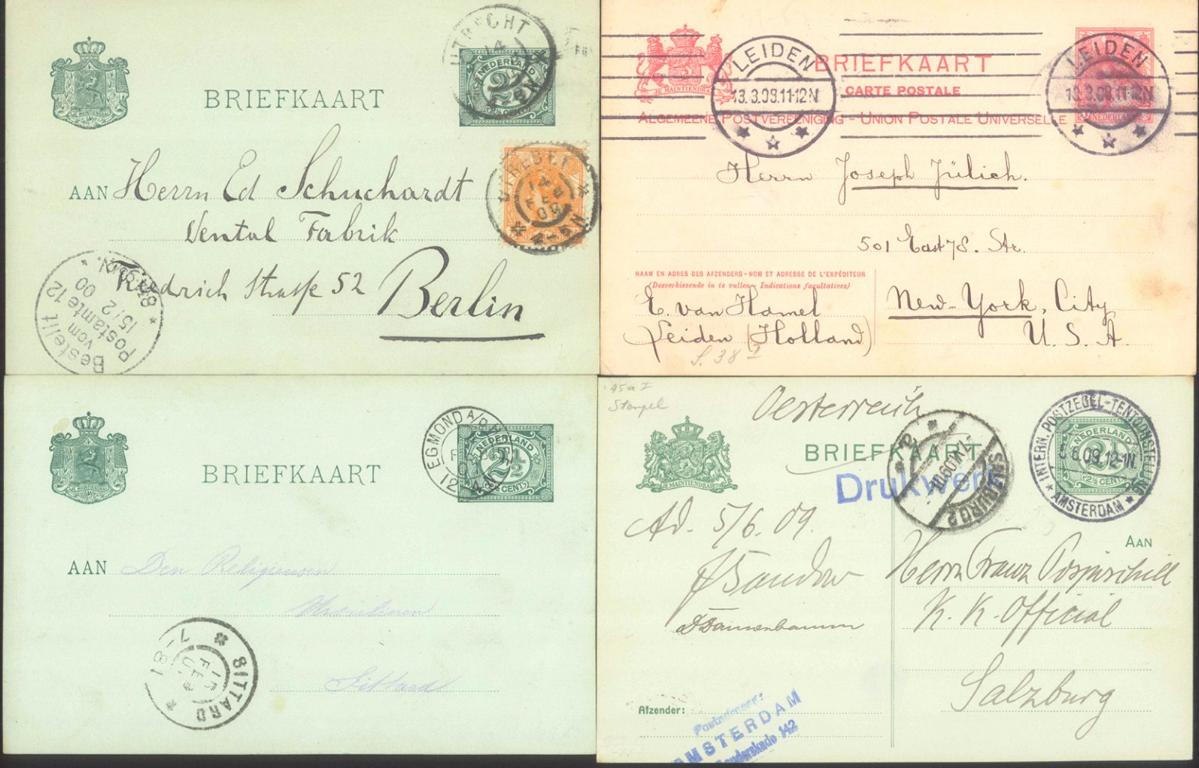 UTRECHT
NEDERLAND
2½
BRIEFKAART
AAN Herrn Ed Schuchardt
Dental Fabrik
Friedrich Straße 52
Berlin
FEB
4-5N
Bestellt
vom
Postamte
15/2
00
LEIDEN
13.3.09.11-12N
BRIEFKAART
CARTE POSTALE
ALGEMEENE POSTVEREENIGING - UNION POSTALE UNIVERSELLE
LEIDEN
13.3.09.11-12N
NEDERLAND
Herrn Joseph Jülich.
501 East 78. Str.
NAAM EN ADRES DES AFZENDERS - NOM ET ADRESSE DE L'EXPÉDITEUR
(Desverkiezende in te vullen - Indications facultatives)
E. van Hamel
Leiden (Holland)
New-York, City
U. S. A.
S. 38
EGMOND A/D
NEDERLAND
2½
CENT
BRIEFKAART
AAN Den Religieusen
Sittard
SITTARD
FEB
95a I
Stempel
Oesterreich
JE MAINTIENDRAI
BRIEFKAART
Drukwerk
SALZBURG 2
INTERN. POSTZEGEL-TENTOONSTELLING
6.09.12-1N
AMSTERDAM
NEDERLAND
2½
Ad. 5/6. 09.
AAN
Herrn Franz
K. K. Official
Salzburg
Afzender:
AMSTERDAM
142